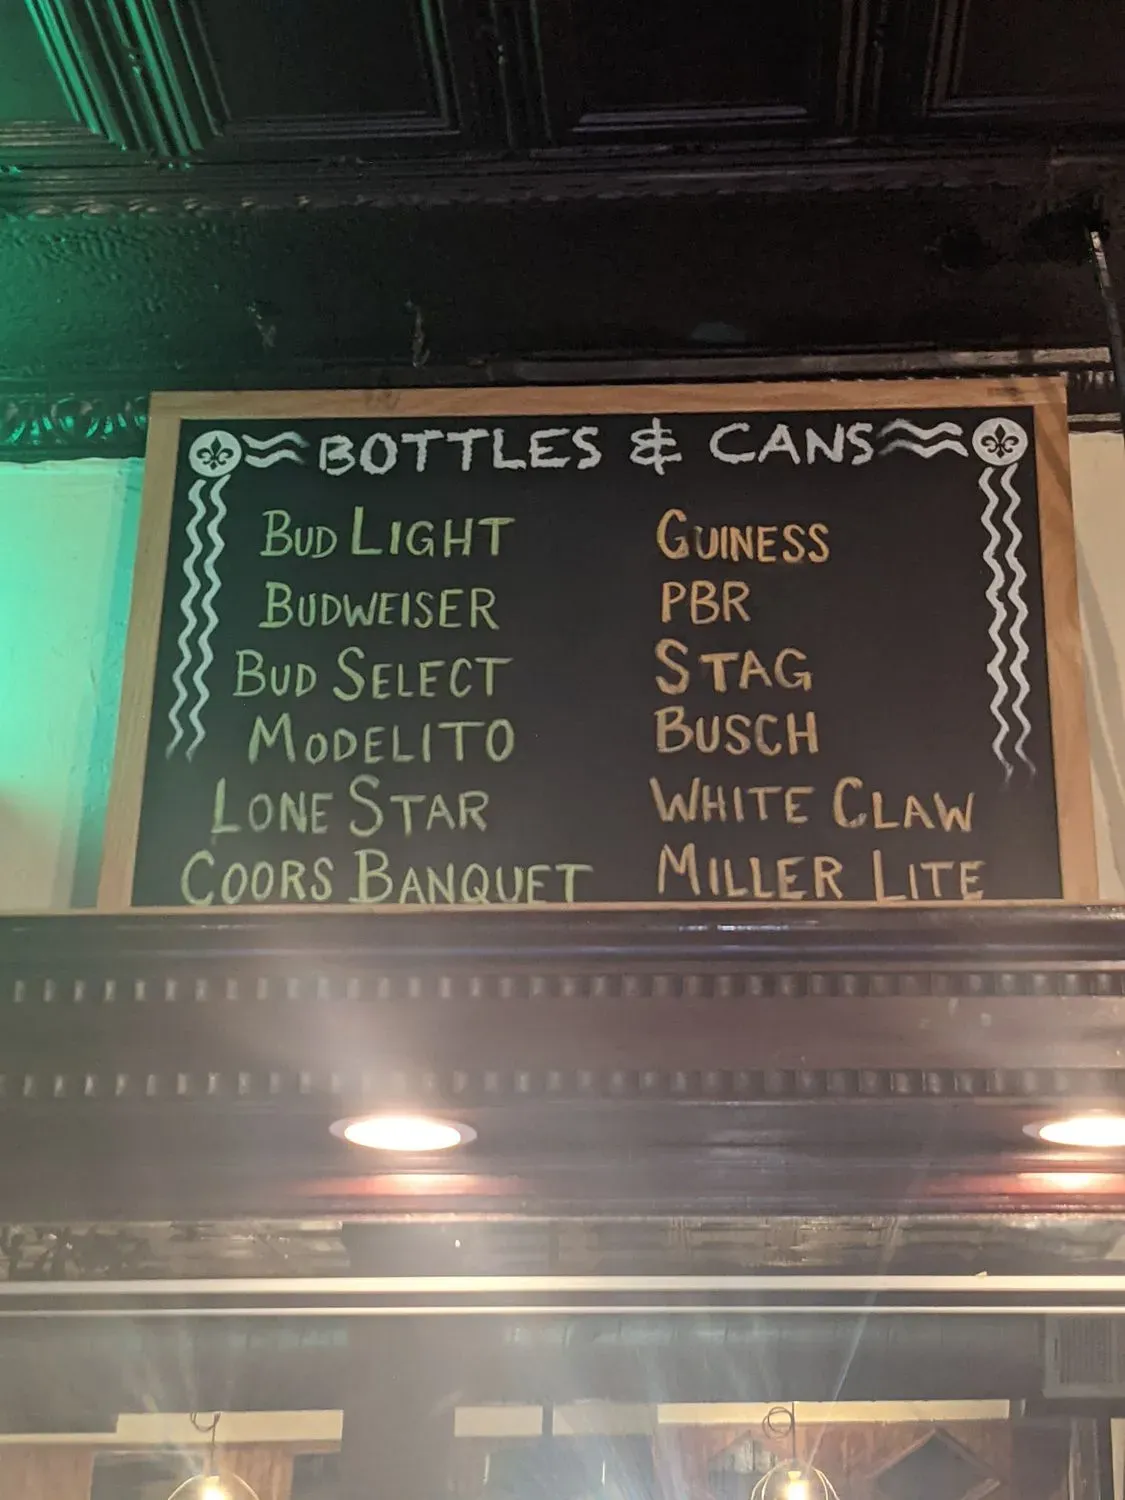 BOTTLES & CANS
BUD LIGHT
BUDWEISER
BUD SELECT
MODELITO
LONE STAR
COORS BANQUET
GUINESS
PBR
STAG
BUSCH
WHITE CLAW
MILLER LITE